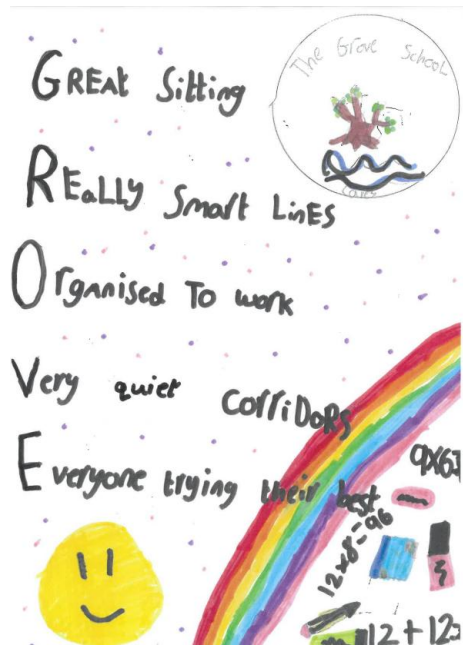 The Grove School
GREAt Sitting
REaLLy Smart LinEs
Organised To work
Very quiet CorriDoRs
Everyone trying their best
9x63
12x8=96
12+12=